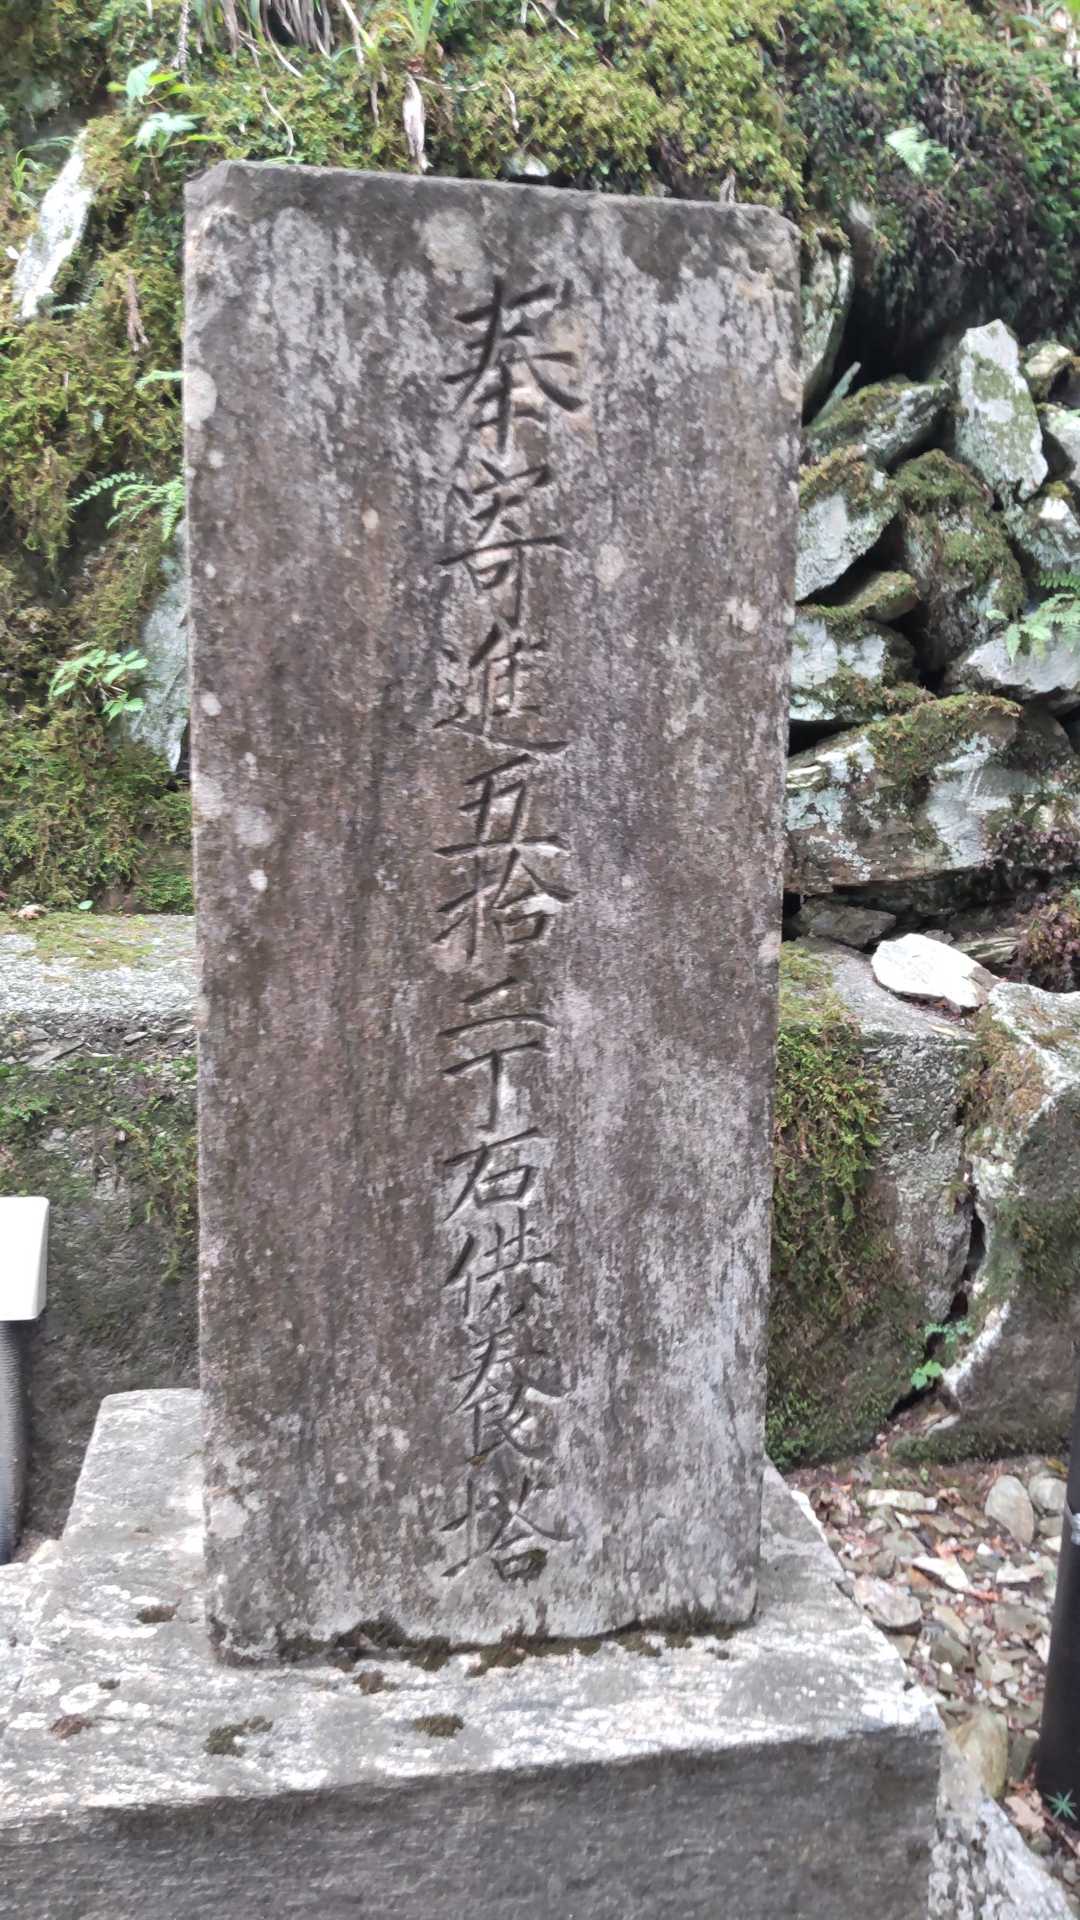 奉寄進五拾二丁石供養塔